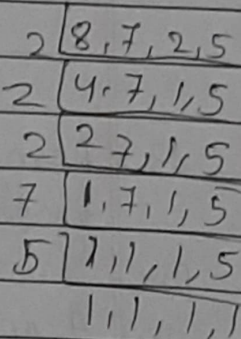 2 | 8, 7, 2, 5
2 | 4, 7, 1, 5
2 | 2 7, 1, 5
7 | 1, 7, 1, 5
5 | 1, 1, 1, 5
1, 1, 1, 1